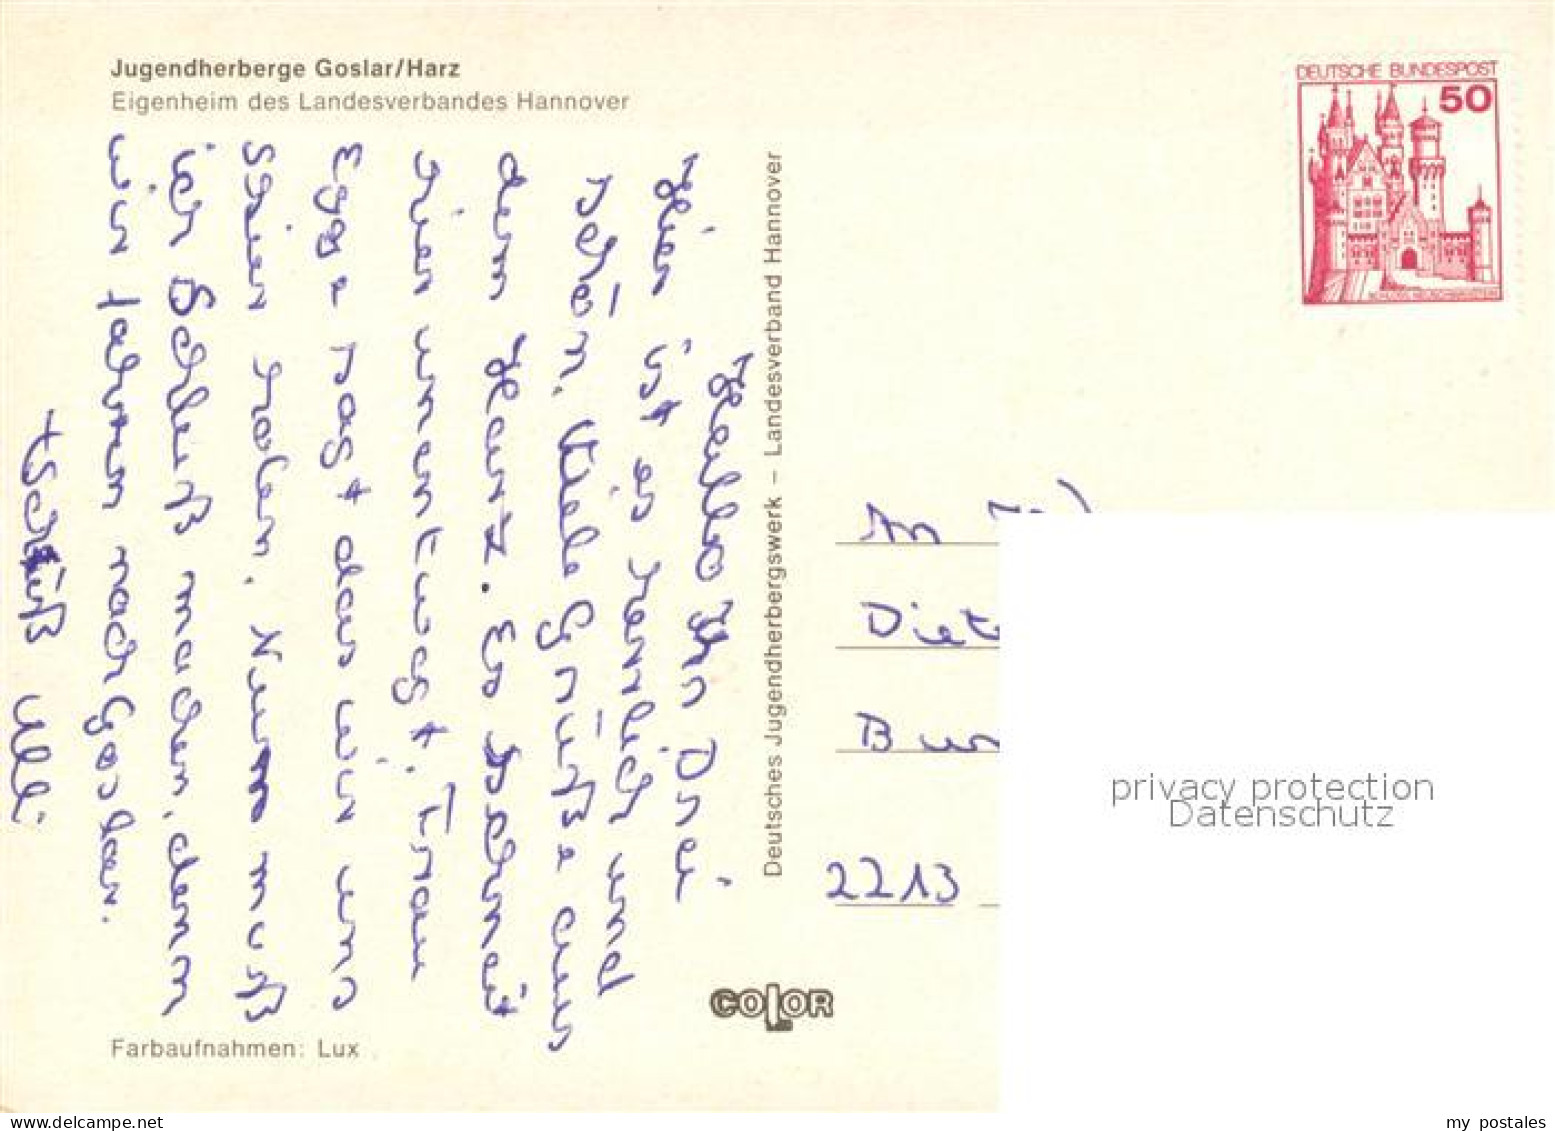 Jugendherberge Goslar/Harz
Eigenheim des Landesverbandes Hannover
DEUTSCHE BUNDESPOST
50
SCHLOSS NEUSCHWANSTEIN
Hallo Ihr Drei
Hier ist es herrlich und
schön. Viele Grüße aus
dem Harz. Es schneit
hier unentwegt. Frau
Eggе hast das wir uns
Skier holen. Nun muß
ich Schluß machen, denn
wir fahren nach Goslar.
tschüß Ulli
Deutsches Jugendherbergswerk – Landesverband Hannover
An
Diet
Bur
2213
COLOR
Farbaufnahmen: Lux
privacy protection
Datenschutz
my postales